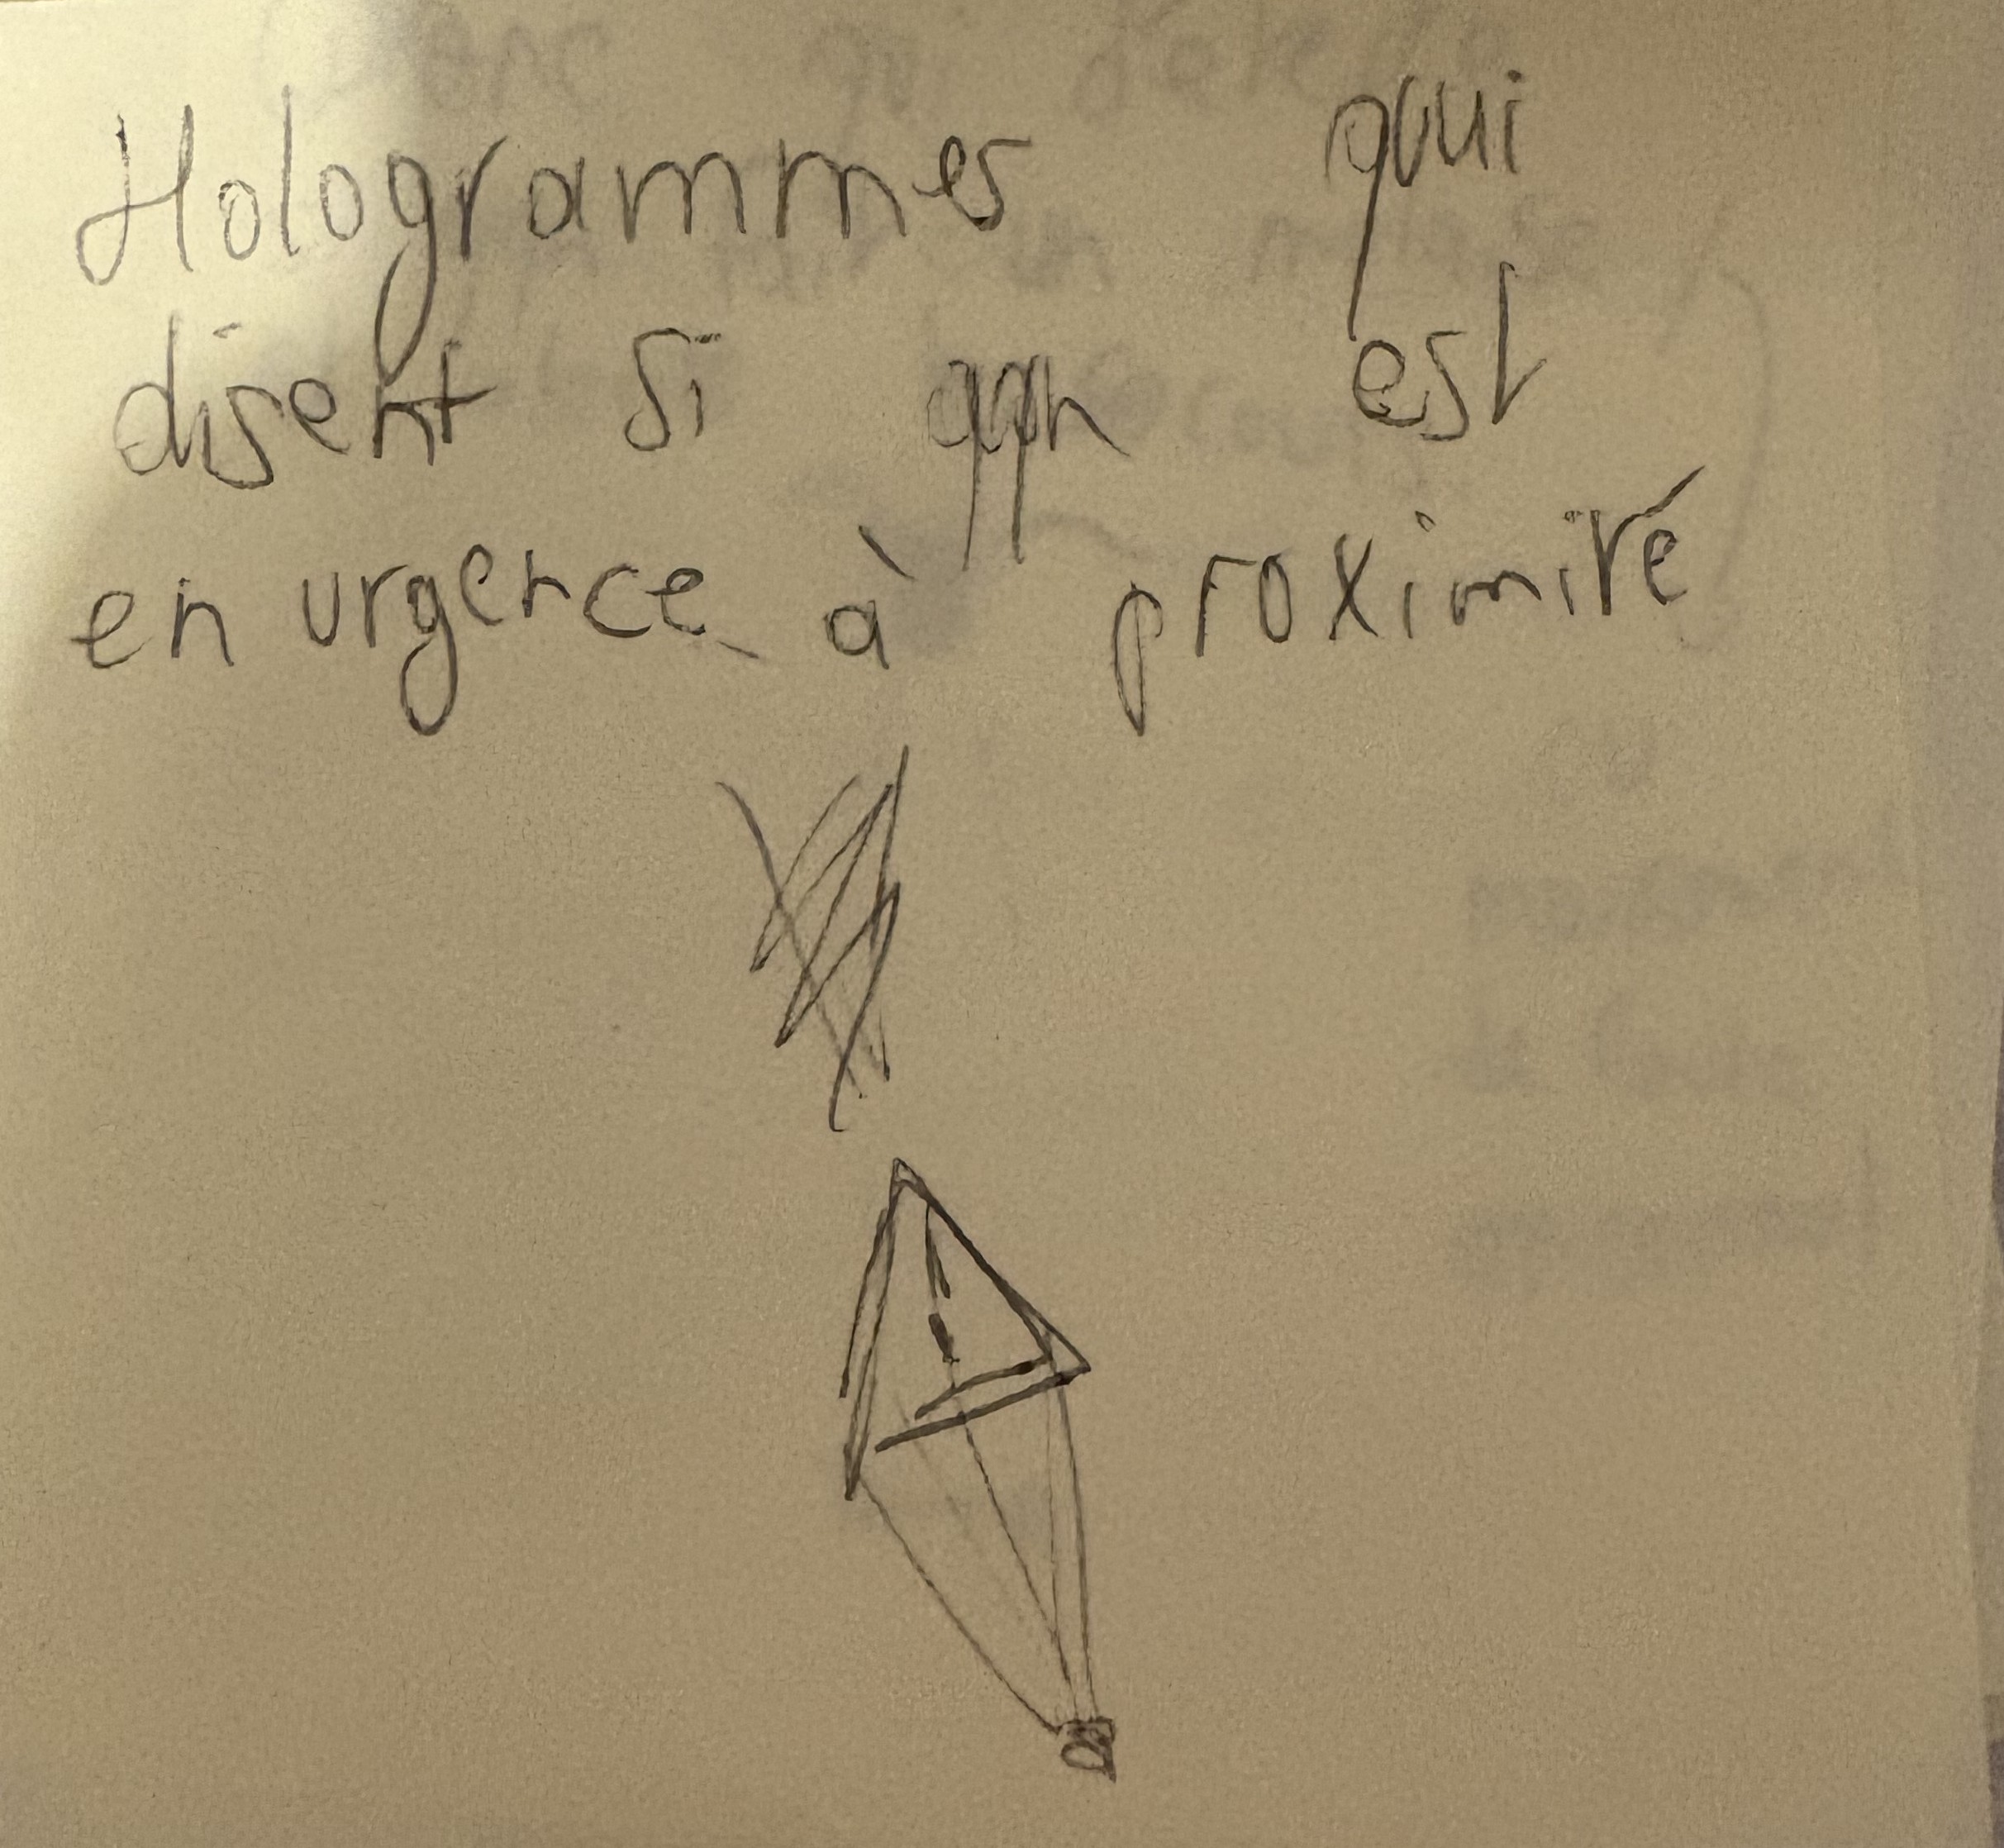 Hologrammes qui
disent si qqn est
en urgence à proximité